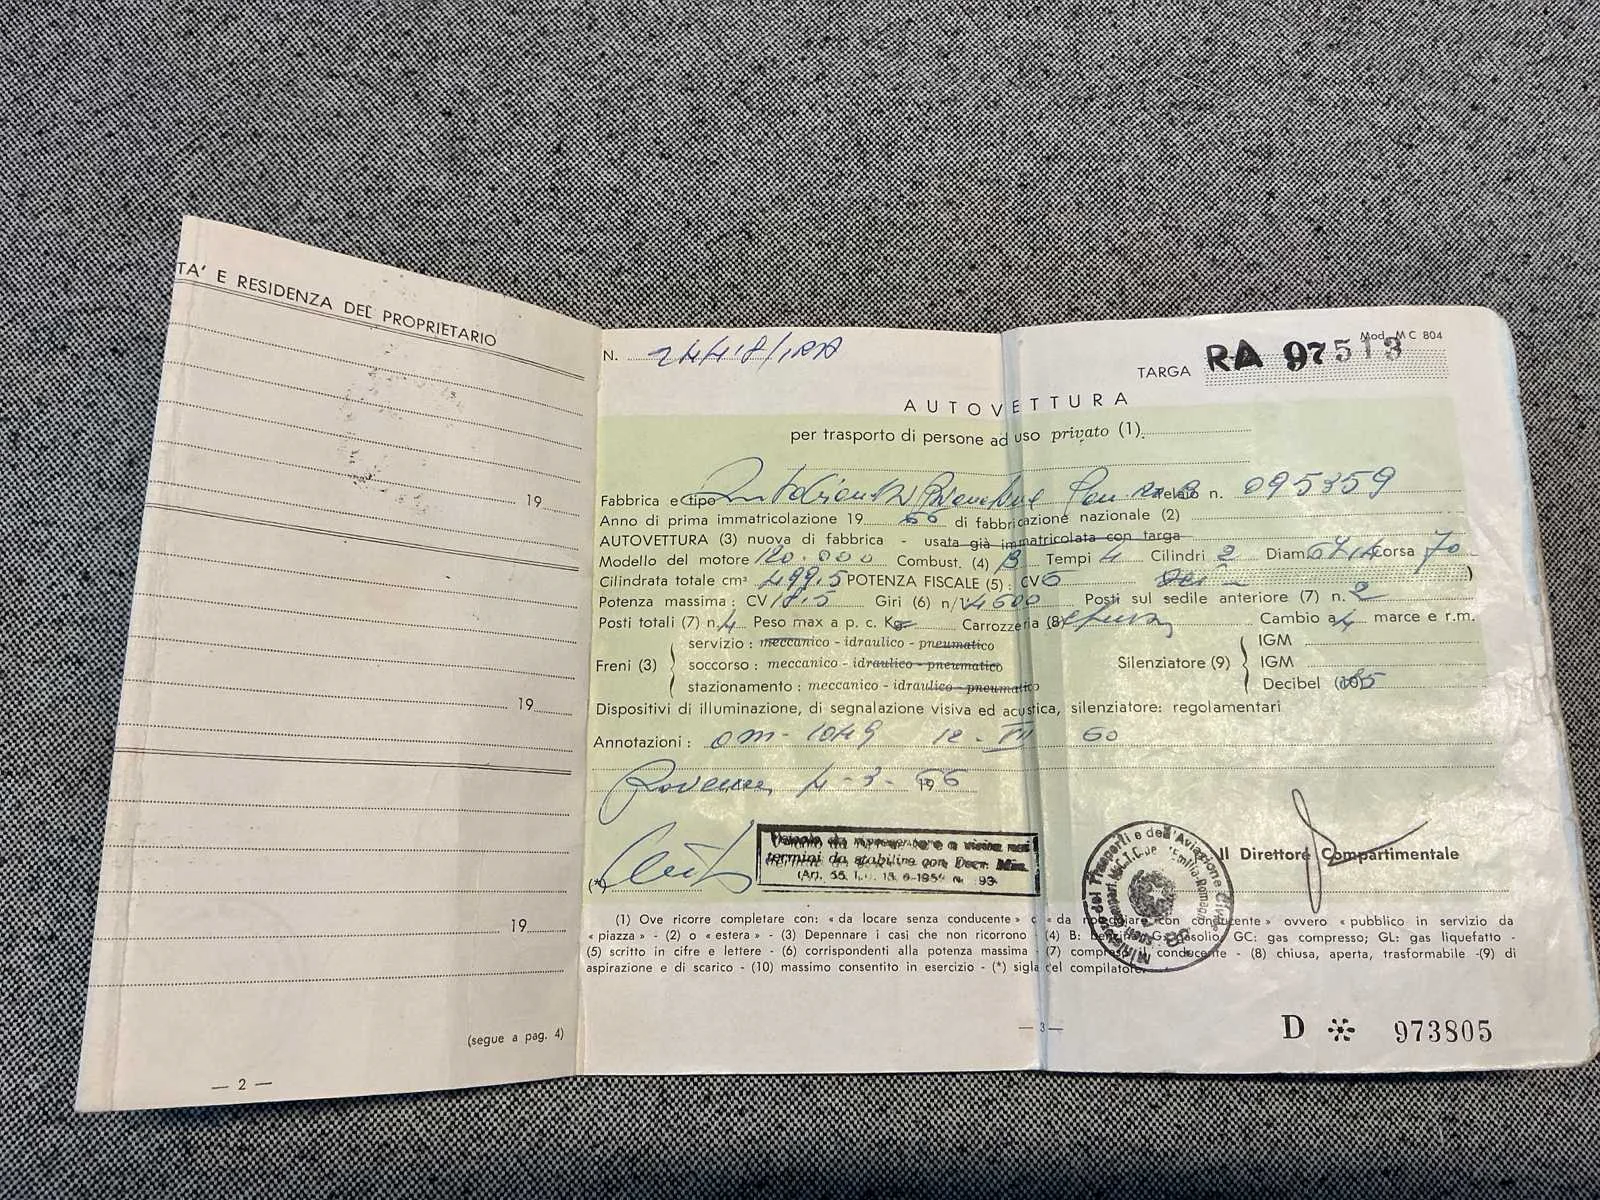 TA' E RESIDENZA DEL PROPRIETARIO
19
19
19
(segue a pag. 4)
— 2 —
N.
Mod. M C 804
TARGA RA 97513
AUTOVETTURA
per trasporto di persone ad uso privato (1)
Fabbrica e tipo Autobianchi Bianchina Telaio n. 095359
Anno di prima immatricolazione 19 66 di fabbricazione nazionale (2)
AUTOVETTURA (3) nuova di fabbrica - usata già immatricolata con targa
Modello del motore 120.000 Combust. (4) B Tempi 4 Cilindri 2 Diam 67,4 corsa 70
Cilindrata totale cm³ 499.5 POTENZA FISCALE (5): CV 6
Potenza massima: CV 18,5 Giri (6) n/1' 4600 Posti sul sedile anteriore (7) n. 2
Posti totali (7) n. 4 Peso max a p. c. Kg Carrozzeria (8) chiusa Cambio a 4 marce e r.m.
servizio : meccanico - idraulico - pneumatico
Freni (3) soccorso : meccanico - idraulico - pneumatico
stazionamento : meccanico - idraulico - pneumatico
Silenziatore (9) IGM
IGM
Decibel (10) 85
Dispositivi di illuminazione, di segnalazione visiva ed acustica, silenziatore: regolamentari
Annotazioni : OM - 1049 12 - VII 60
Ravenna, 4-3-1966
Veicolo da
termini da stabilire con Decr. Min.
(Art. 55
(*)
Il Direttore Compartimentale
(1) Ove ricorre completare con: « da locare senza conducente » o « da noleggiare con conducente » ovvero « pubblico in servizio da
« piazza » - (2) o « estera » - (3) Depennare i casi che non ricorrono - (4) B: benzina; G: gasolio; GC: gas compresso; GL: gas liquefatto -
(5) scritto in cifre e lettere - (6) corrispondenti alla potenza massima - (7) compreso il conducente - (8) chiusa, aperta, trasformabile -(9) di
aspirazione e di scarico - (10) massimo consentito in esercizio - (*) sigla del compilatore.
— 3 —
D 973805